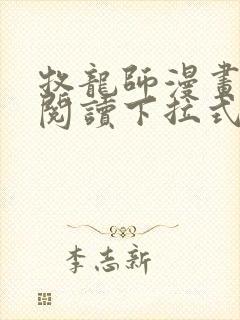 牧龍師漫畫
閱讀下拉式
李志新